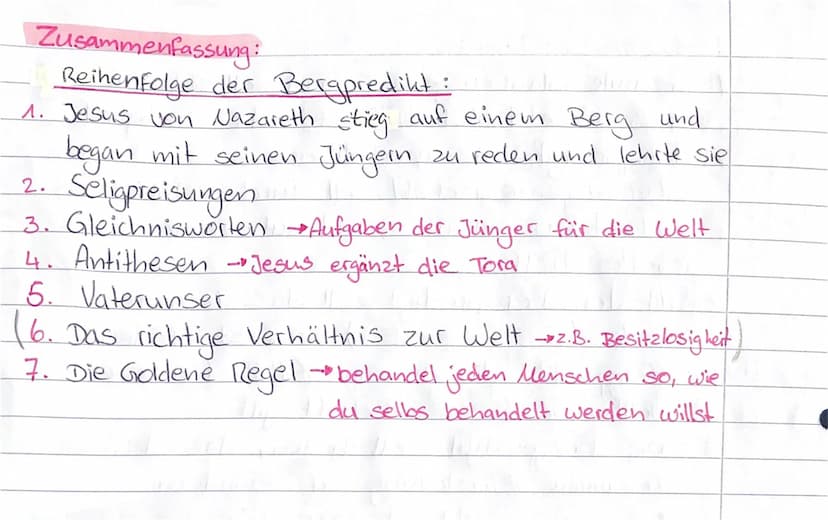 Zusammenfassung:
Reihenfolge der Bergpredikt:
1. Jesus von Nazareth stieg auf einem Berg und
began mit seinen Jüngern zu reden und lehrte sie
2. Seligpreisungen
3. Gleichnisworten → Aufgaben der Jünger für die Welt
4. Antithesen → Jesus ergänzt die Tora
5. Vaterunser
(6. Das richtige Verhältnis zur Welt → z.B. Besitzlosigheit)
7. Die Goldene Regel → behandel jeden Menschen so, wie
du selbs behandelt werden willst